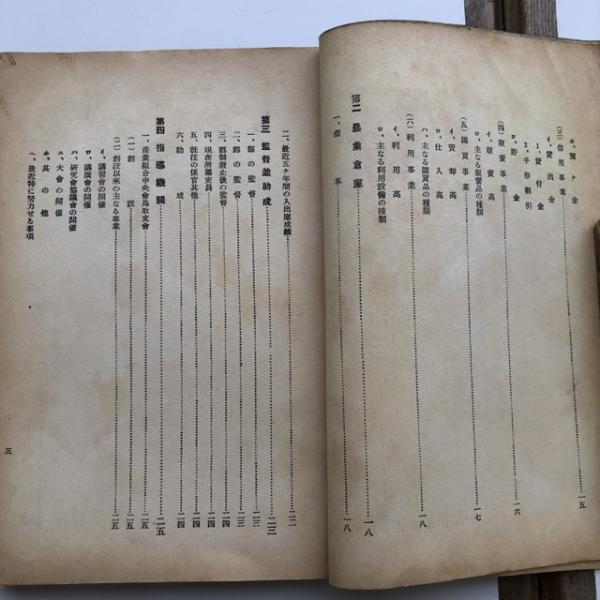 ホ、預ケ金
(三)信用事業……一五
イ、貸出金
1、貸付金
2、手形割引
ロ、貯金……一六
(四)販賣事業
イ、販賣高
ロ、主なる販賣品の種類
(五)購買事業……一七
イ、賣却高
ロ、仕入高
ハ、主なる購買品の種類
(六)利用事業……一八
イ、利用高
ロ、主なる利用設備の種類
第二 農業倉庫……一八
一、沿革……一八
二、最近五ケ年間の入出庫成績……二二
第三 監督並助成……二三
一、縣の監督……二三
二、郡の監督……二三
三、郡制廢止後の監督……二四
四、現在所屬吏員……二四
五、旣往の保官其他……二四
六、助成……二四
第四 指導機關……二五
一、產業組合中央會鳥取支會……二五
(一)創設……二五
(二)創設以來の主なる事業……二五
イ、講習會の開催
ロ、講演會の開催
ハ、研究會協議會の開催
ニ、大會の開催
ホ、其の他
ヘ、最近特に努力せる事項
三